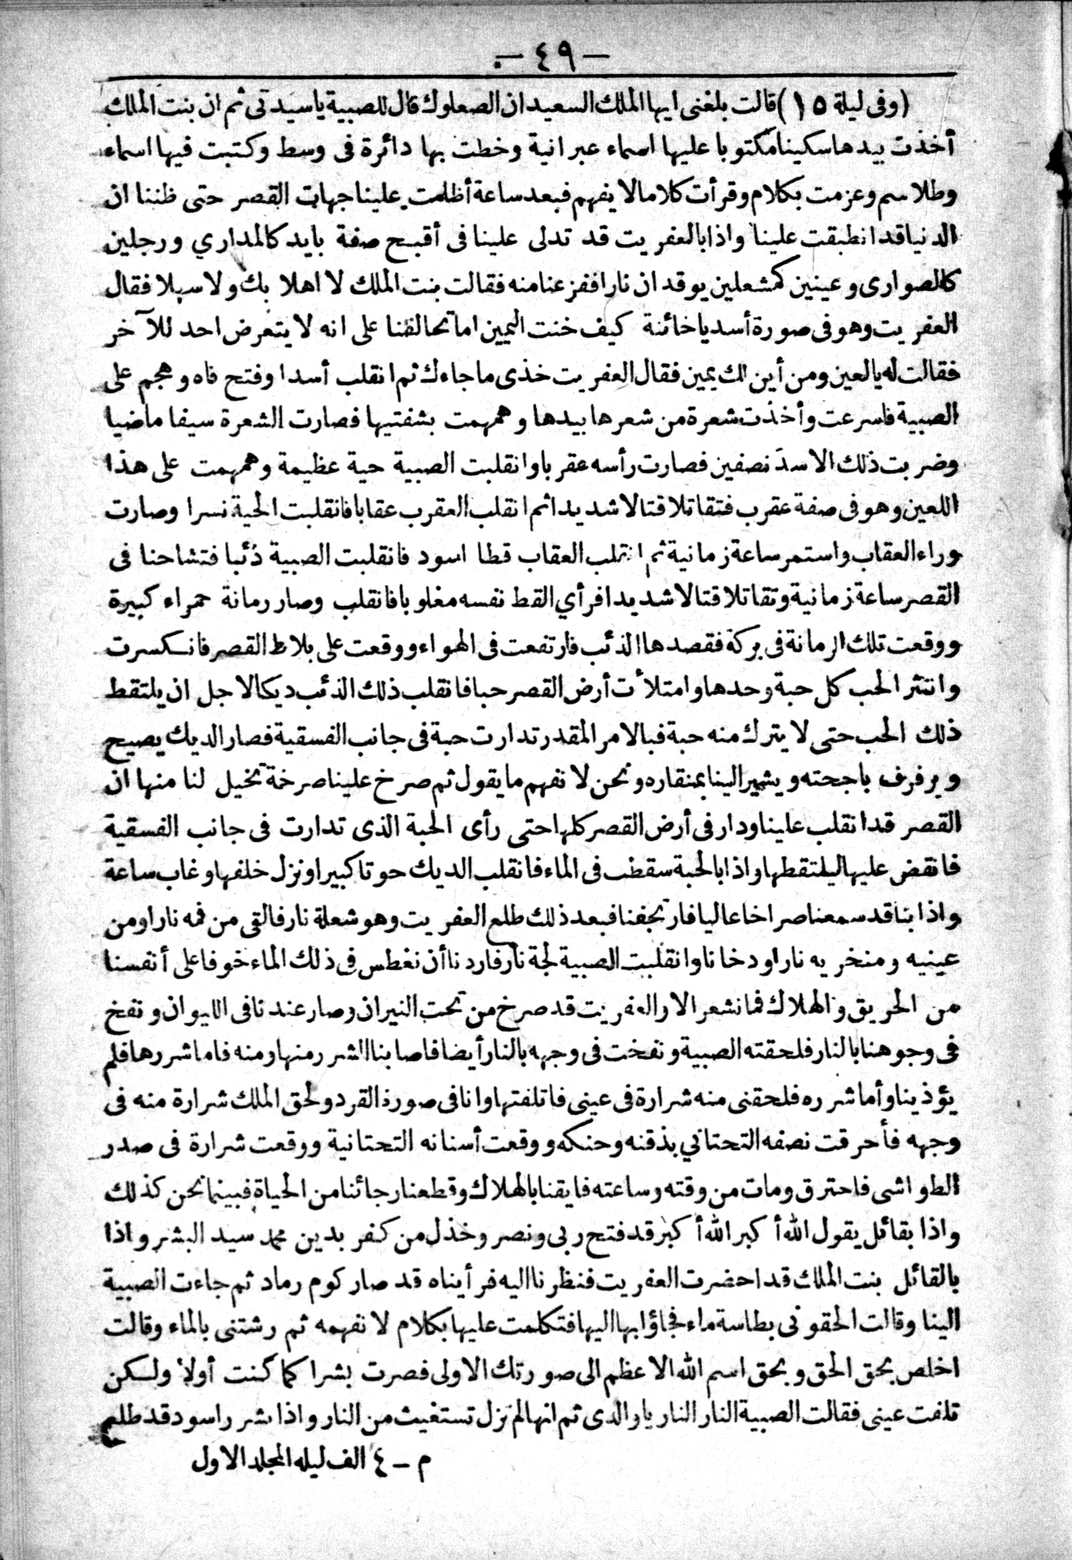 — ٤٩ —
(وفى ليلة ١٥) قالت بلغنى ايها الملك السعيد ان الصعلوك قال للصبية ياسيدتى ثم ان بنت الملك
أخذت بيدها سكينا مكتوبا عليها اسماء عبرانية وخطت بها دائرة فى وسط وكتبت فيها اسماء
وطلاسم وعزمت بكلام وقرأت كلاما لا يفهم فبعد ساعة أظلمت علينا جهات القصر حتى ظننا ان
الدنيا قد انطبقت علينا واذا بالعفريت قد تدلى علينا فى أقبح صفة بايد كالمدارى ورجلين
كالصوارى وعينين كمشعلين يوقدان نارا ففزعنا منه فقالت بنت الملك لا اهلا بك ولا سهلا فقال
العفريت وهو فى صورة أسد يا خائنة كيف خنت اليمين اما تحالفنا على انه لا يتعرض احد للآخر
فقالت له يا لعين ومن أين لك يمين فقال العفريت خذى ما جاءك ثم انقلب أسدا وفتح فاه وهجم على
الصبية فاسرعت وأخذت شعرة من شعرها بيدها وهمهمت بشفتيها فصارت الشعرة سيفا ماضيا
وضربت ذلك الاسد نصفين فصارت رأسه عقربا وانقلبت الصبية حية عظيمة وهمهمت على هذا
اللعين وهو فى صفة عقرب فتقاتلا قتالا شديدا ثم انقلب العقرب عقابا فانقلبت الحية نسرا وصارت
وراء العقاب واستمر ساعة زمانية ثم انقلب العقاب قطا اسود فانقلبت الصبية ذئبا فتشاحنا فى
القصر ساعة زمانية وتقاتلا قتالا شديدا فرأى القط نفسه مغلوبا فانقلب وصار رمانة حمراء كبيرة
ووقعت تلك الرمانة فى بركة فقصدها الذئب فارتفعت فى الهواء ووقعت على بلاط القصر فانكسرت
وانتثر الحب كل حبة وحدها وامتلأت أرض القصر حبا فانقلب ذلك الذئب ديكا لاجل ان يلتقط
ذلك الحب حتى لا يترك منه حبة فبالامر المقدر تدارت حبة فى جانب الفسقية فصار الديك يصيح
ويرفرف باجحته ويشير الينا بمنقاره ونحن لا نفهم ما يقول ثم صرخ علينا صرخة تخيل لنا منها ان
القصر قد انقلب علينا ودار فى أرض القصر كلها حتى رأى الحبة الذى تدارت فى جانب الفسقية
فانقض عليها ليلتقطها واذا بالحبة سقطت فى الماء فانقلب الديك حوتا كبيرا ونزل خلفها وغاب ساعة
واذا بنا قد سمعنا صراخا عاليا فارتجفنا فبعد ذلك طلع العفريت وهو شعلة نار فالقى من فمه نارا ومن
عينيه ومنخريه نارا ودخانا وانقلبت الصبية لجة نار فاردنا أن نغطس فى ذلك الماء خوفا على أنفسنا
من الحريق والهلاك فما نشعر الا والعفريت قد صرخ من تحت النيران وصار عندنا فى الليوان ونفخ
فى وجوهنا بالنار فلحقته الصبية ونفخت فى وجهه بالنار أيضا فاصابنا الشرر منها ومنه فاما شررها فلم
يؤذينا وأما شرره فلحقنى منه شرارة فى عينى فاتلفتها وانا فى صورة القرد ولحق الملك شرارة منه فى
وجهه فأحرقت نصفه التحتانى بذقنه وحنكه ووقعت أسنانه التحتانية ووقعت شرارة فى صدر
الطواشى فاحترق ومات من وقته وساعته فايقنا بالهلاك وقطعنا رجائنا من الحياة فبينما نحن كذلك
واذا بقائل يقول الله أكبر الله أكبر قد فتح ربى ونصر وخذل من كفر بدين محمد سيد البشر واذا
بالقائل بنت الملك قد احضرت العفريت فنظرنا اليه فرأيناه قد صار كوم رماد ثم جاءت الصبية
الينا وقالت الحقونى بطاسة ماء فجاؤا بها اليها فتكلمت عليها بكلام لا نفهمه ثم رشتنى بالماء وقالت
اخلص بحق الحق وبحق اسم الله الاعظم الى صورتك الاولى فصرت بشرا كما كنت أولا ولكن
تلفت عينى فقالت الصبية النار النار يا والدى ثم انها لم تزل تستغيث من النار واذا بشرر اسود قد طلع
م – ٤ الف ليله المجلد الاول